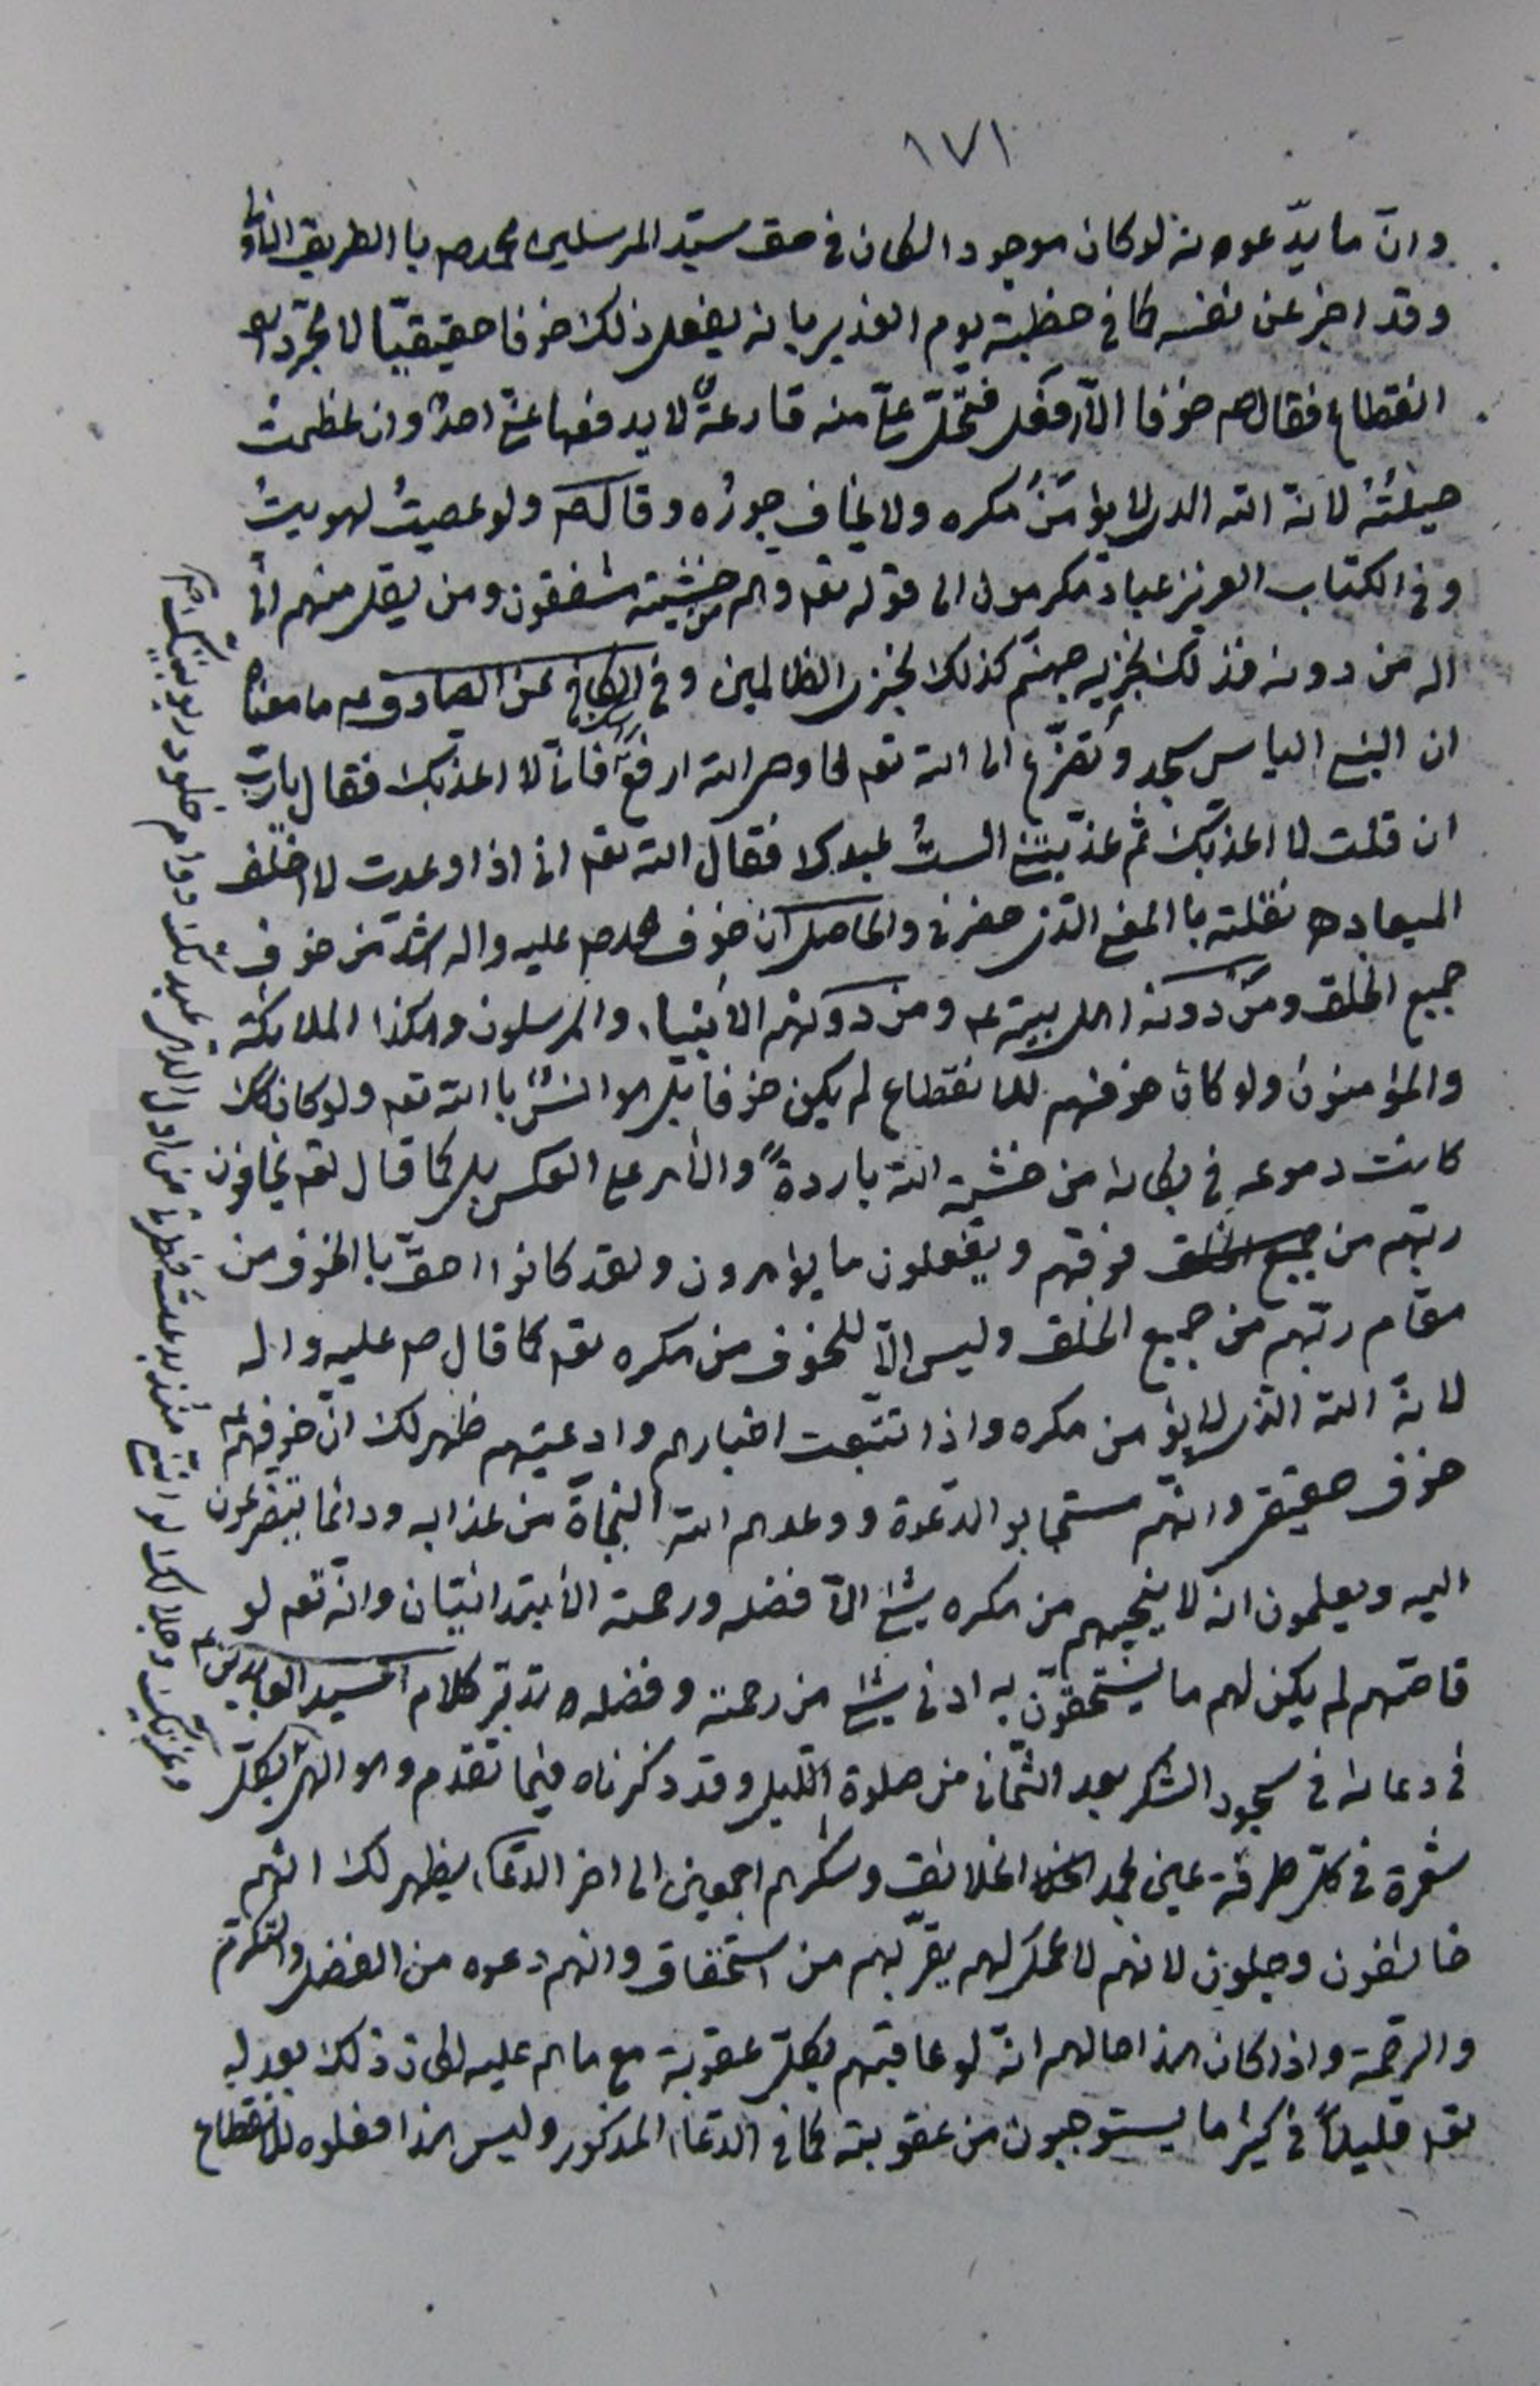 ١٧١
وانّ ما يدّعونه لو كان موجودا لكان في حق سيّد المرسلين محمد ص با الطريق الاولى
وقد اخبر عن نفسه كما في خطبة يوم الغدير بانه يفعل ذلك خوفا حقيقيّا لا مجرّد
انقطاع فقال ص خوفا الّا افعل فتحلّ عليّ منه قارعةٌ لا يدفعها عنّي احدٌ وان عظمت
حيلتُهُ لانه الله الذي لا يؤمَنُ مكره ولا يخاف جورُه وقال ص ولو عصيتُ لهويتُ
وفي الكتاب العزيز عباد مكرمون الى قوله تعه وهم من خشيته مشفقون ومن يقل منهم انّي
اله من دونه فذلك نجزيه جهنّم كذلك نجزي الظالمين وفي الكافي عن الصادق ع ما معناه
ان النبي الياس سجد وتضرّع الى الله تعه فاوحى الله ارفع رأسك فانّي لا اعذبك فقال يا ربّ
ان قلت لا اعذبك ثم عذّبتني الستُ عبدك فقال الله تعه اني اذا وعدت لا اخلف
الميعاد ه نقلته با المعنى الذي حضرني والحاصل ان خوف محمد ص عليه واله اشدّ من خوف
جميع الخلق ومن دونه اهل بيته ع ومن دونهم الأنبياء والمرسلون وهكذا الملائكة
والمؤمنون ولو كان خوفهم للانقطاع لم يكن خوفا بل هو انسٌ با الله تعه ولو كان كك
كانت دموعه في بكائه من خشية الله باردةً والأمر على العكس بل كما قال تعه يخافون
ربّهم من فوقهم ويفعلون ما يؤمرون ولقد كانوا احقّ با الخوف من
مقام ربّهم من جميع الخلق وليس الّا للخوف من مكره تعه كما قال ص عليه واله
لانه الله الذي لا يؤمن مكره واذا تتبّعت اخبارهم وادعيتهم ظهر لك انّ خوفهم ع
خوف حقيقي وانهم مستجابو الدعوة ووعدهم الله النجاة من عذابه ودائما يتضرعون
اليه ويعلمون انه لا ينجيهم من مكره شئ الّا فضله ورحمته الأبتدائيتان وانّه تعه لو
قاصّهم لم يكن لهم ما يستحقّون به ادنى شئ من رحمته وفضله وتدبّر كلام السيد العابدين ع
في دعائه في سجود الشكر بعد الثمان من صلوة الليل وقد ذكرناه فيما تقدم وهو الهي بكلّ
شعرة في كلّ طرفة عين لحمد الخلائق وشكرهم اجمعين الى اخر الدعاء يظهر لك انهم
خائفون وجلون لانهم لا عمل لهم يقرّبهم من استحقاق وانهم دعوه من الفضل والتكرّم
والرحمة واذا كان هذا حالهم انّه لو عاقبهم بكلّ عقوبة مع ما هم عليه لكان ذلك بعدله
تعه قليلاً في كثير ما يستوجبون من عقوبته كما في الدعاء المذكور وليس هذا فعلوه للانقطاع
وعزّتك وجلالك لو انّي منذ بدعت فطرتي من اول الدهر عبدتك دوام خلود ربوبيتك